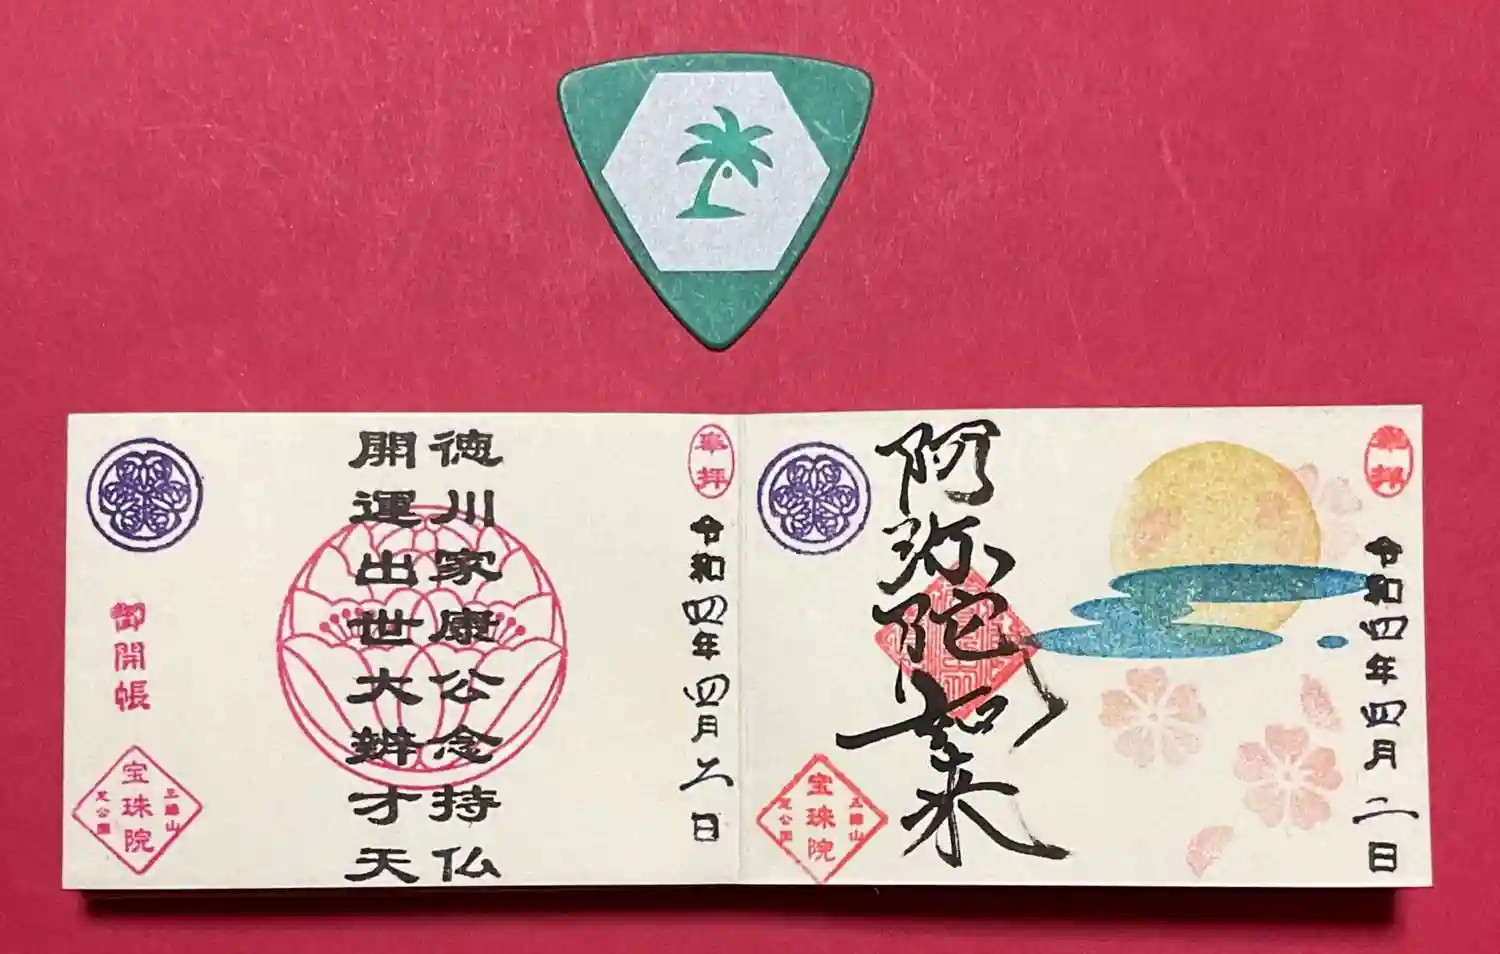 奉拝
令和四年四月二日
阿弥陀如来
宝珠院
三縁山
芝公園
奉拝
令和四年四月二日
徳川家康公念持仏
開運出世大辨才天
御開帳
三縁山
宝珠院
芝公園